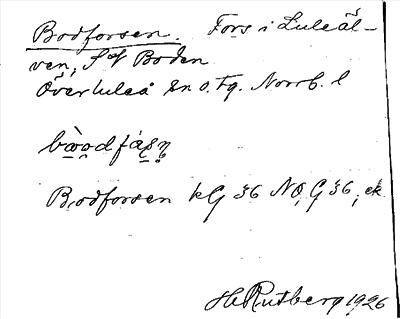 Bodforsen. Fors i Luleäl-
ven, S of Boden
Överluleå sn o. Tg. Norrb. l
bòdfásn
Bodforsen kG 36 NO, G 36, ek.
H Rutberg 1926